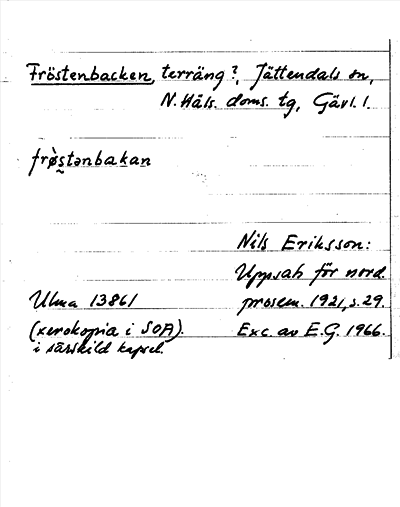 Fröstenbacken, terräng?, Jättendals sn,
N. Häls. doms. tg, Gävl. l.
frø̀stənbakan
Nils Eriksson:
Uppsats för nord.
Ulma 13861 prosem. 1921, s. 29.
(xerokopia i SOA). Exc. av E.G. 1966.
i särskild kapsel.